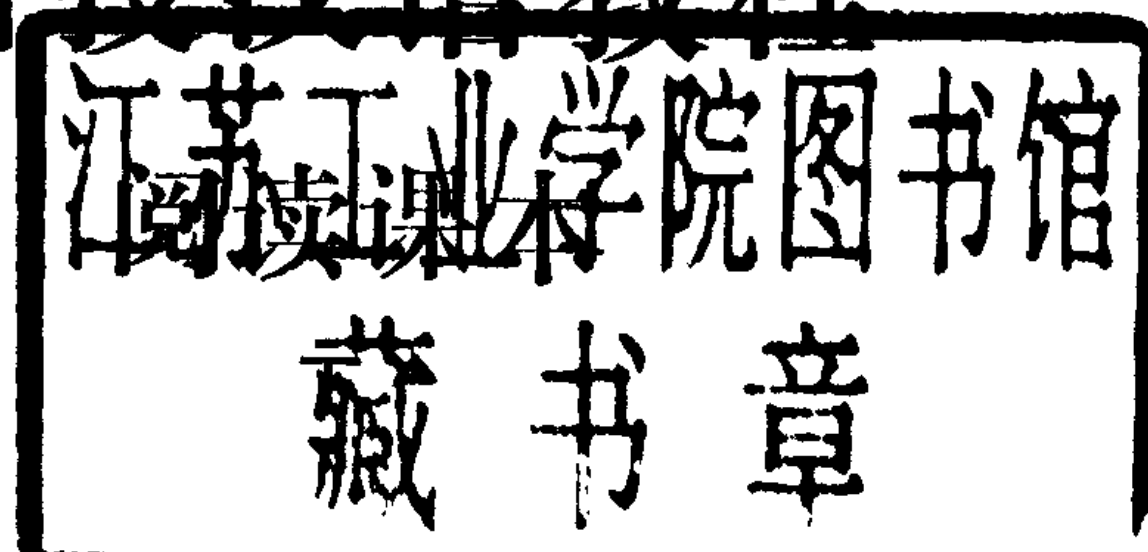 江苏工业学院图书馆
阅读课本
藏书章